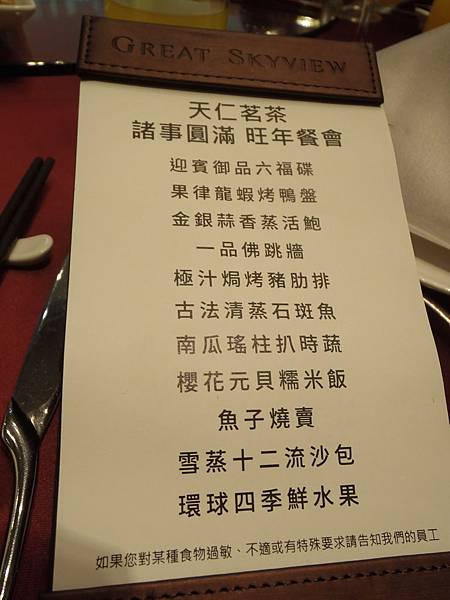 GREAT SKYVIEW
天仁茗茶
諸事圓滿 旺年餐會
迎賓御品六福碟
果律龍蝦烤鴨盤
金銀蒜香蒸活鮑
一品佛跳牆
極汁焗烤豬肋排
古法清蒸石斑魚
南瓜瑤柱扒時蔬
櫻花元貝糯米飯
魚子燒賣
雪蒸十二流沙包
環球四季鮮水果
如果您對某種食物過敏、不適或有特殊要求請告知我們的員工